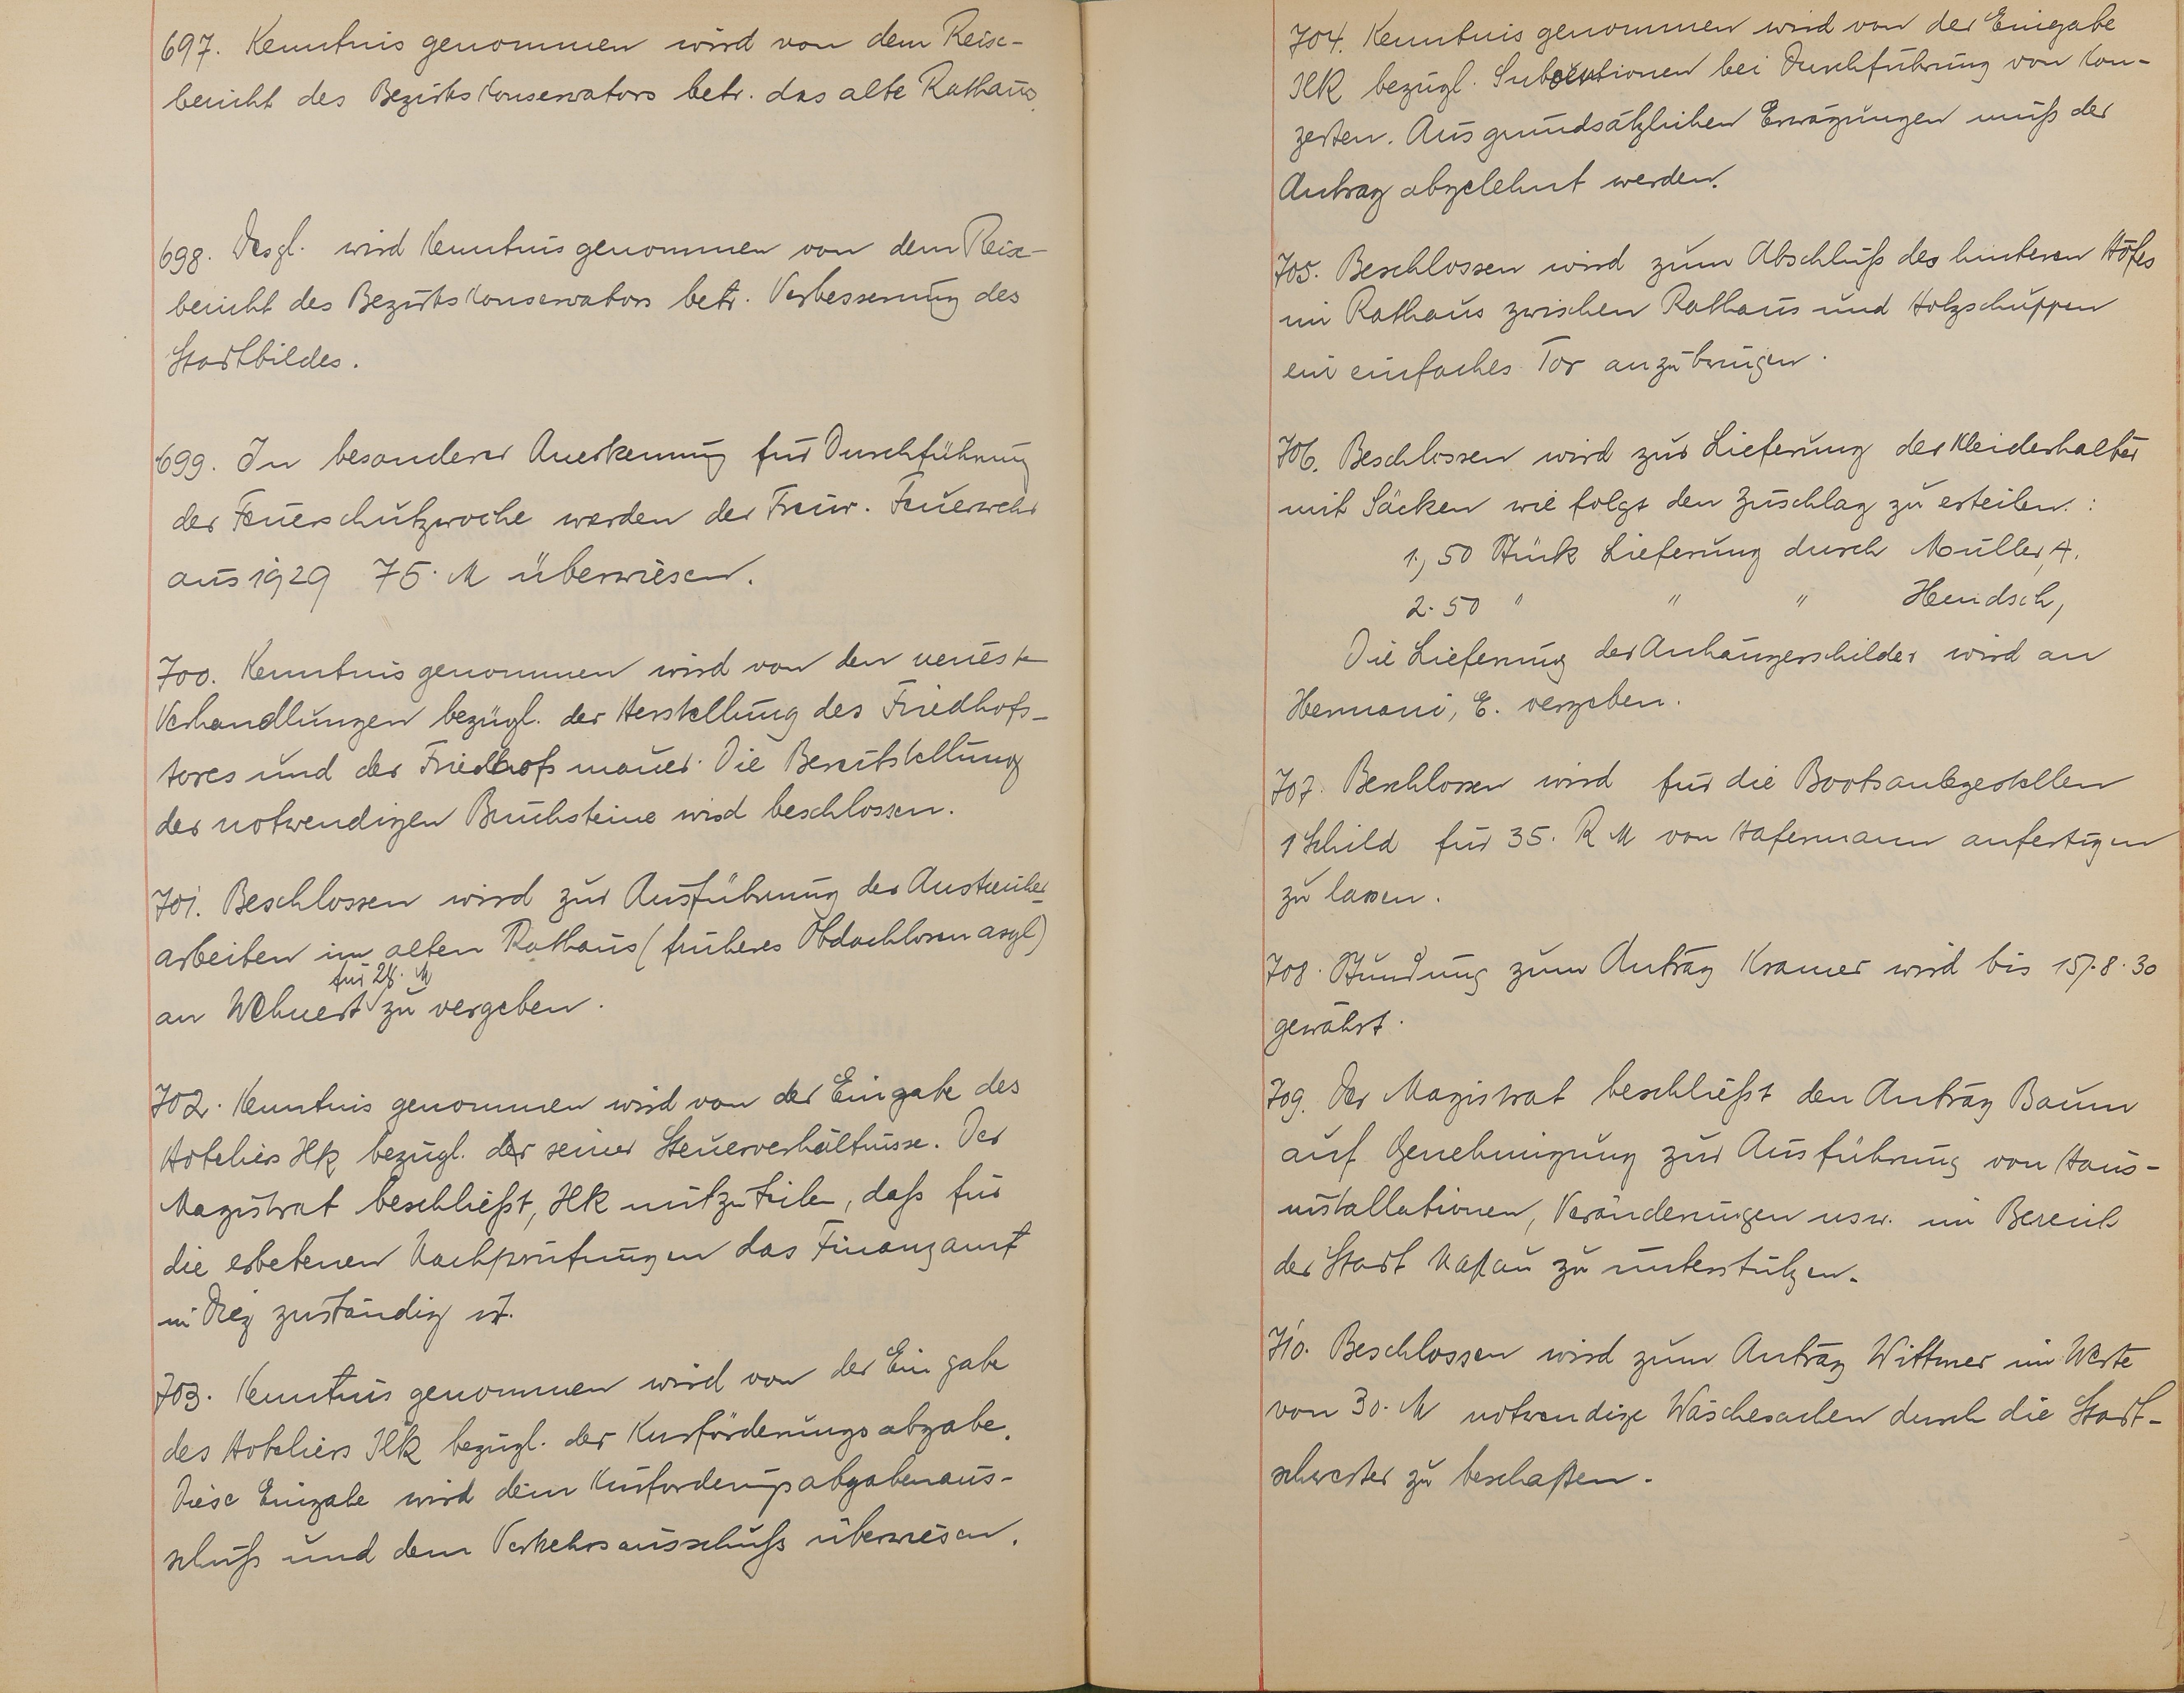 697. Kenntnis genommen wird von dem Reise-
bericht des Bezirkskonservators betr. das alte Rathaus.
698. Desgl. wird Kenntnis genommen von dem Reise-
bericht des Bezirkskonservators betr. Verbesserung des
Stadtbildes.
699. In besonderer Anerkennung für Durchführung
der Feuerschutzwoche werden der Freiw. Feuerwehr
aus 1929 75. M überwiesen.
700. Kenntnis genommen wird von den neuesten
Verhandlungen bezügl. der Herstellung des Friedhofs-
tores und der Friedhofsmauer. Die Bereitstellung
der notwendigen Bruchsteine wird beschlossen.
701. Beschlossen wird zur Ausführung der Anstreicher-
arbeiten im alten Rathaus (früheres Obdachlosenasyl)
für 28. M
an Wehnert zu vergeben.
702. Kenntnis genommen wird von der Eingabe des
Hoteliers Ilk bezügl. der seiner Steuerverhältnisse. Der
Magistrat beschließt, Ilk mitzuteilen, daß für
die erbetenen Nachprüfungen das Finanzamt
in Diez zuständig ist.
703. Kenntnis genommen wird von der Eingabe
des Hoteliers Ilk bezügl. der Kurförderungsabgabe.
Diese Eingabe wird dem Kurförderungsabgabenaus-
schuß und dem Verkehrsausschuß überwiesen.
704. Kenntnis genommen wird von der Eingabe
Ilk bezügl. Subventionen bei Durchführung von Kon-
zerten. Aus grundsätzlichen Erwägungen muß der
Antrag abgelehnt werden.
705. Beschlossen wird zum Abschluß des hinteren Hofes
im Rathaus zwischen Rathaus und Holzschuppen
ein einfaches Tor anzubringen.
706. Beschlossen wird zur Lieferung der Kleiderhalter
mit Säcken wie folgt den Zuschlag zu erteilen.:
1., 50 Stück Lieferung durch Müller, A.
2. 50 " " " Hendsch,
Die Lieferung der Anhängerschilder wird an
Hermani, E. vergeben.
707. Beschlossen wird für die Bootsanlegestellen
1 Schild für 35. RM von Hafermann anfertigen
zu lassen.
708. Stundung zum Antrag Kramer wird bis 15.8.30
gewährt.
709. Der Magistrat beschließt den Antrag Baum
auf Genehmigung zur Ausführung von Haus-
installationen, Veränderungen usw. im Bereich
der Stadt Nassau zu unterstützen.
710. Beschlossen wird zum Antrag Wittmer im Werte
von 30. M notwendige Wäschesachen durch die Stadt-
schwester zu beschaffen.